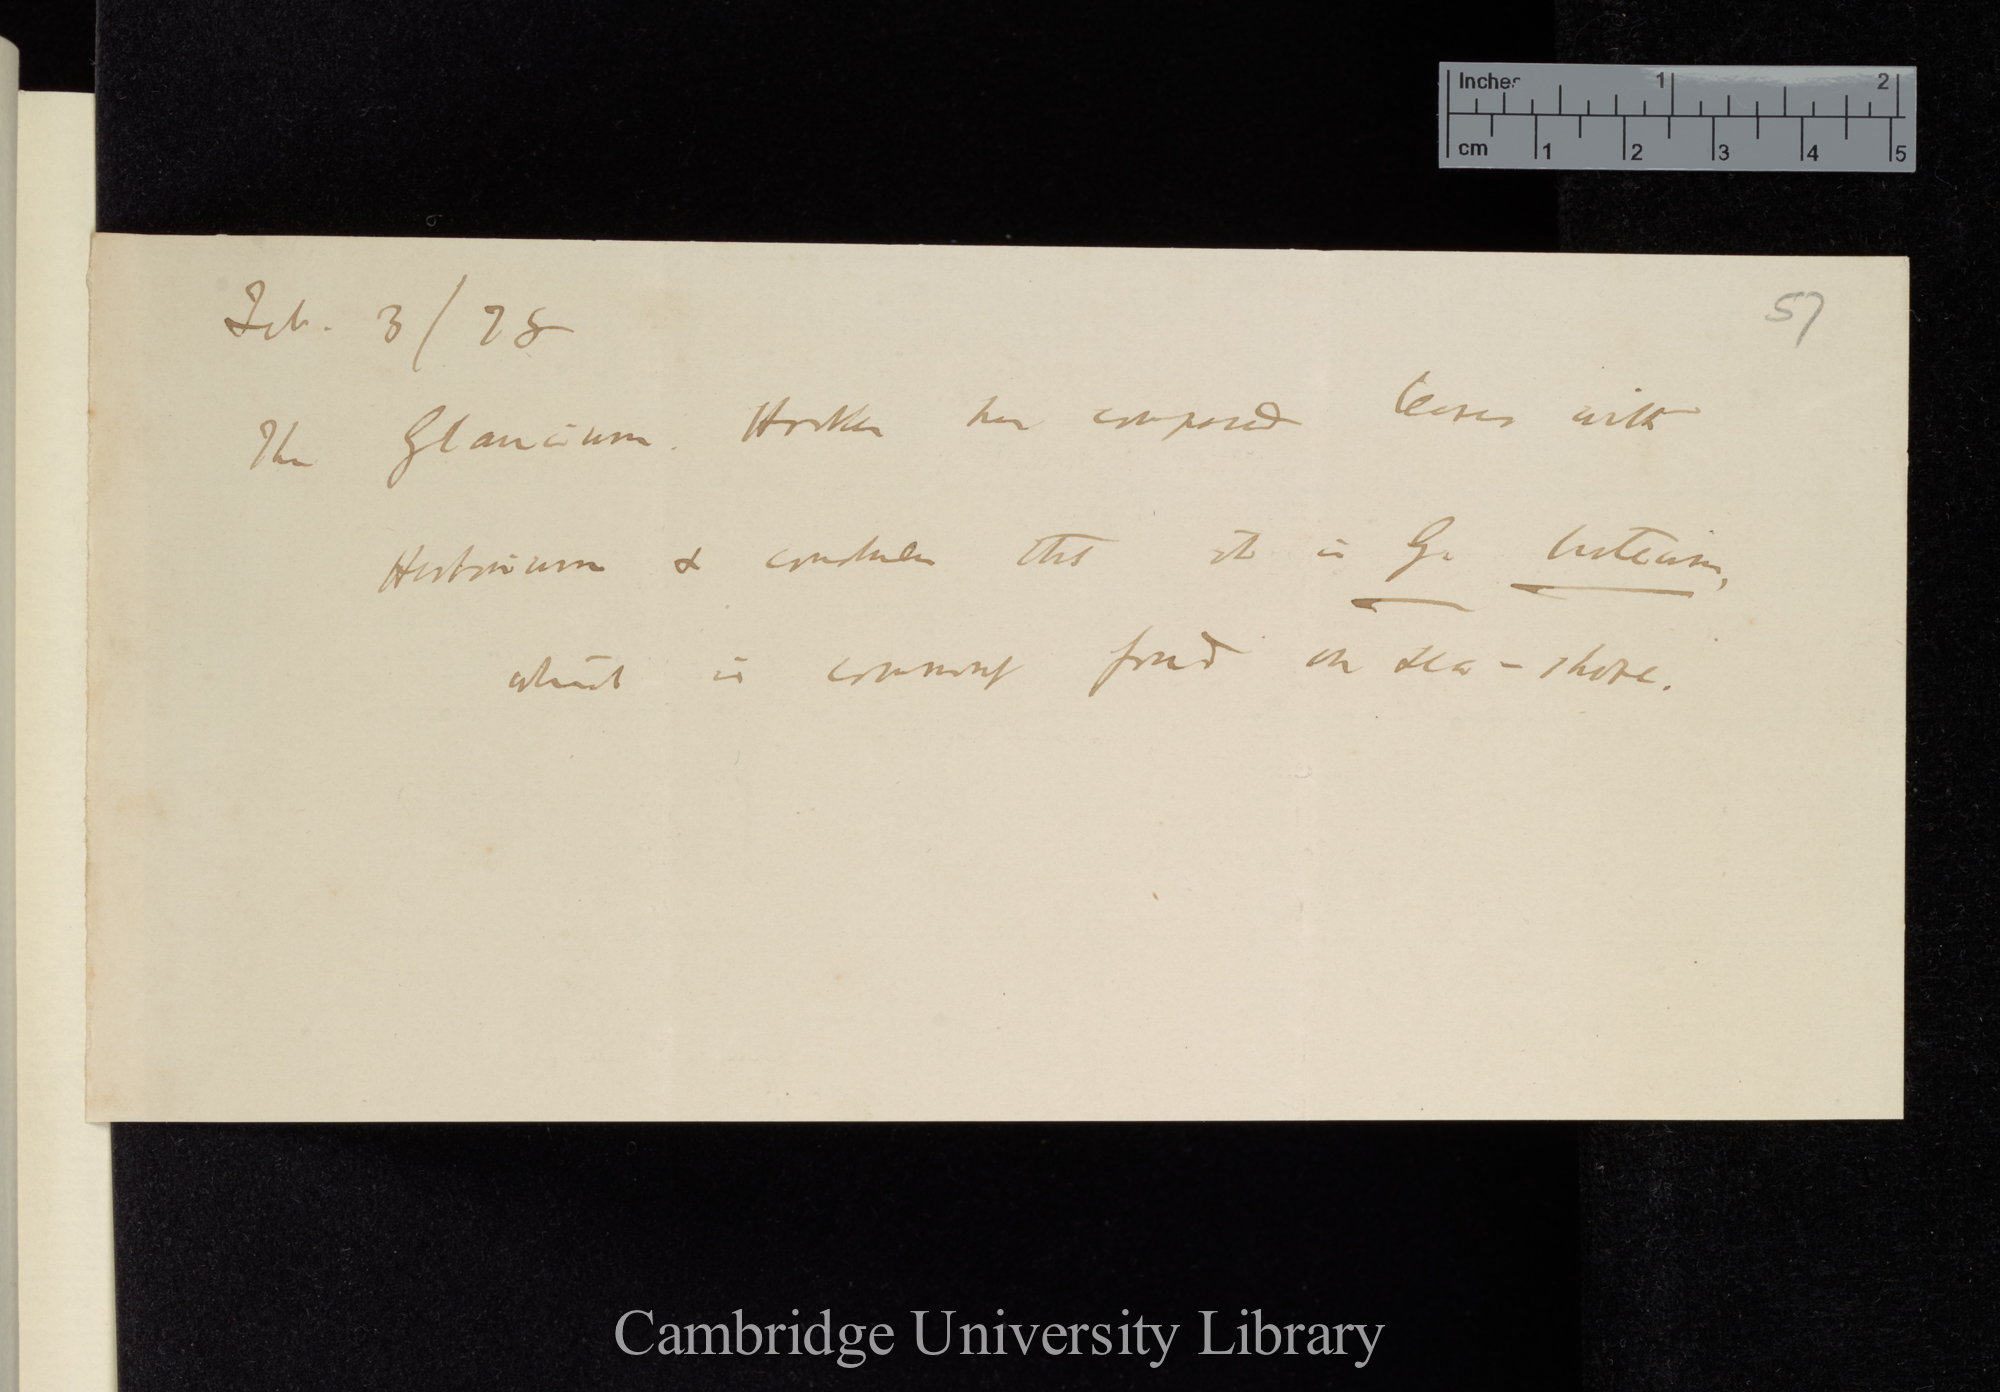 Inches 1 2
cm 1 2 3 4 5
57
Feb. 3/78
The Glaucium. Hooker has compared leaves with
Herbarium & concludes that it is G. luteum,
which is commonly found on sea-shore.
Cambridge University Library